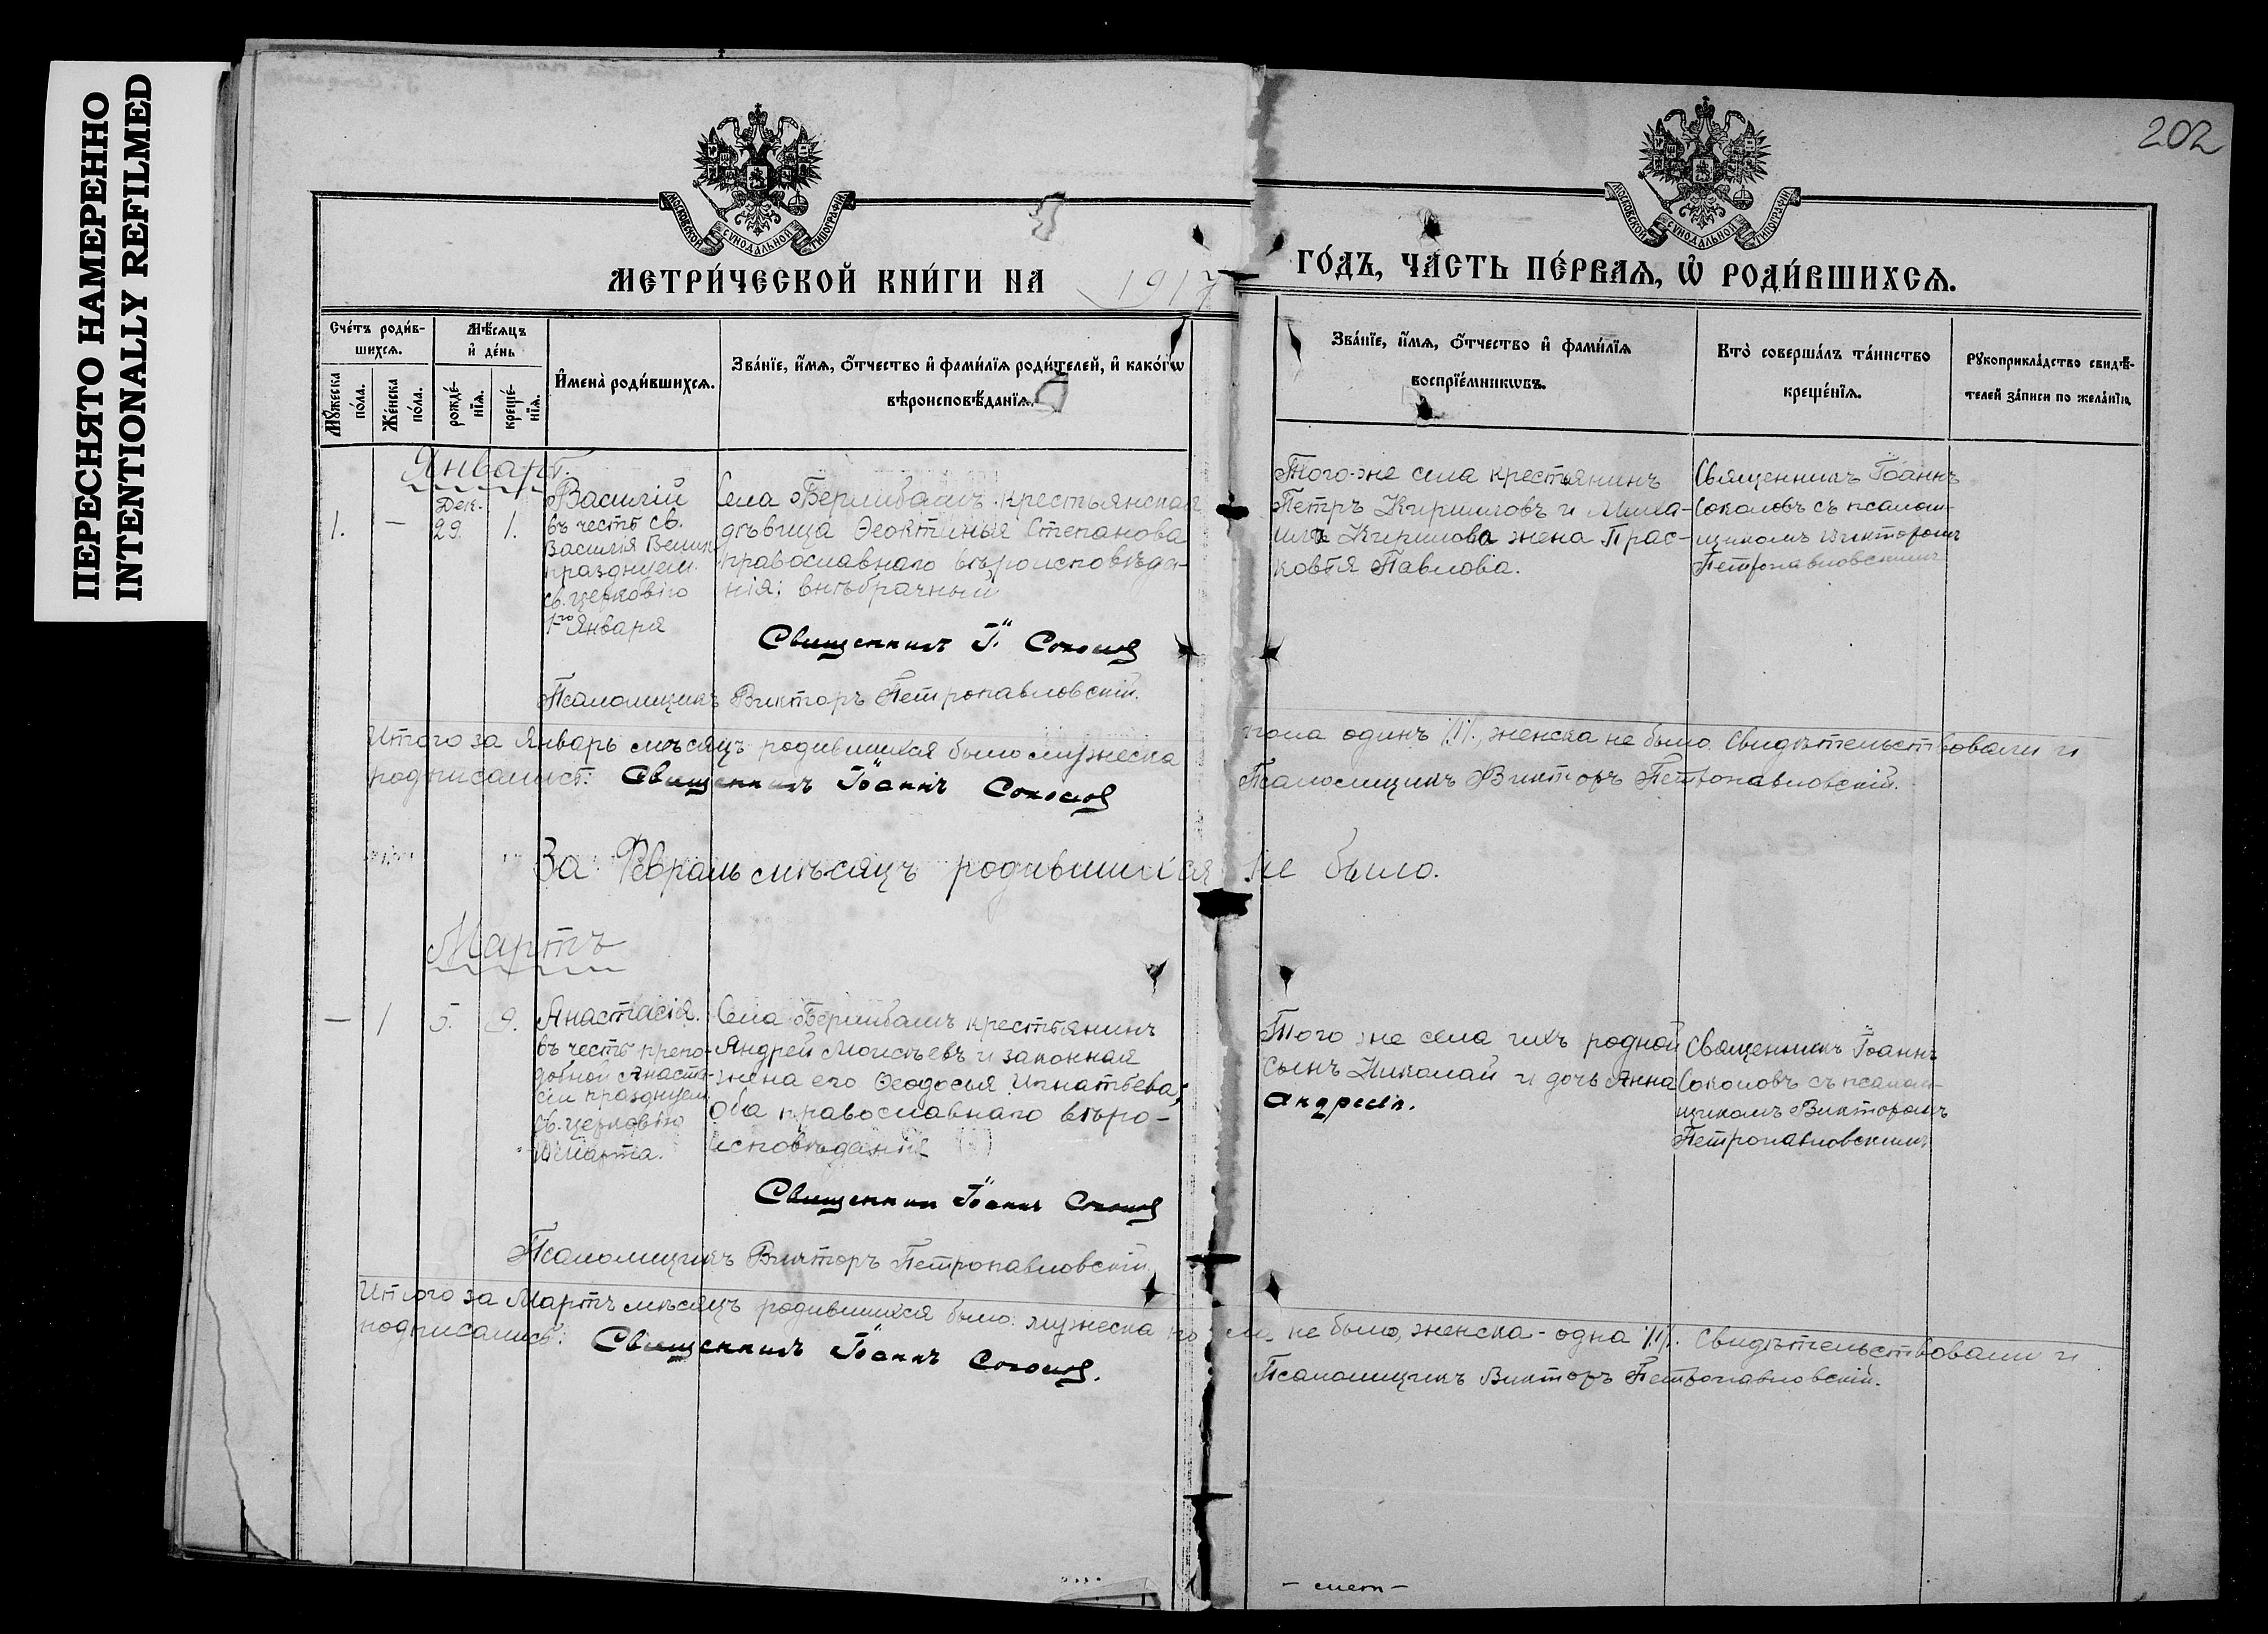 ПЕРЕСНЯТО НАМЕРЕННО
INTENTIONALLY REFILMED
202
МОСКОВСКОЙ СѴНОДАЛЬНОЙ ТИПОГРАФІИ
МОСКОВСКОЙ СѴНОДАЛЬНОЙ ТИПОГРАФІИ
МЕТРИ́ЧЕСКОЙ КНИ́ГИ НА 1917 ГО́ДЪ, ЧА́СТЬ ПЕ́РВАѦ, Ѿ РОДИ́ВШИХСѦ.
Сче́тъ роди́в-
шихсѧ.
Мꙋ́жеска
по́ла.
Же́нска
по́ла.
Мѣ́сѧцъ
и҆ де́нь
рожде́-
нїѧ.
креще́-
нїѧ.
И҆мена̀ роди́вшихсѧ.
Зва́нїе, и҆́мѧ, ѻ҆́тчество и҆ фами́лїѧ роди́телей, и҆ како́гѡ
вѣроисповѣ́данїѧ.
Зва́нїе, и҆́мѧ, ѻ҆́тчество и҆ фами́лїѧ
воспрїе́мникѡвъ.
Кто̀ соверша́лъ та́инство
креще́нїѧ.
Рꙋкоприкла́дство свидѣ́-
телей за́писи по жела́нїю.
Январь.
1.
—
Дек.
29.
1.
Василій
въ честь св.
Василія Велик.
празднуем.
св. церковію
1го Января
Села Берлибашъ крестьянская
дѣвица Ѳеоктинья Степанова
православнаго вѣроисповѣда-
нія; внѣбрачный
Того-же села крестьянинъ
Петръ Кирилловъ и Миха-
ила Кирилова жена Прас-
ковья Павлова.
Священникъ Іоаннъ
Соколовъ съ псалом-
щикомъ Викторомъ
Петропавловскимъ
Священникъ І. Соколов
Псаломщикъ Викторъ Петропавловскій.
Итого за Январь мѣсяцъ родившихся было мужеска пола одинъ /1/., женска не было. Свидѣтельствовали и
подписались: Священникъ Іоаннъ Соколов Псаломщикъ Викторъ Петропавловскій.
За Февраль мѣсяцъ родившихся не было.
Мартъ
—
1
5.
9.
Анастасія.
въ честь препо-
добной Анаста-
сіи празднуем.
св. церковію
10 Марта.
Села Берлибашъ крестьянинъ
Андрей Моисѣевъ и законная
жена его Ѳеодосья Игнатьева;
Оба православнаго вѣро-
исповѣданія
Того же села ихъ родной
сынъ Николай и дочь Анна
Андреев.
Священникъ Іоаннъ
Соколовъ съ псалом-
щикомъ Викторомъ
Петропавловскимъ
Священник Іоаннъ Соколов
Псаломщикъ Викторъ Петропавловскій.
Итого за Мартъ мѣсяцъ родившихся было: мужеска пола не было, женска - одна /1/. Свидѣтельствовали и
подписались: Священникъ Іоаннъ Соколов. Псаломщикъ Викторъ Петропавловскій.